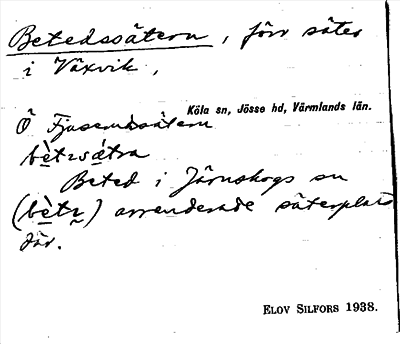 Betedssätern, förr säter
i Växvik,
Köla sn, Jösse hd, Värmlands län.
Ö Fjusernässätern
bètzsä́tra
Beted i Järnskogs sn
(bètz) arrenderade säterplats
där.
ELOV SILFORS 1938.